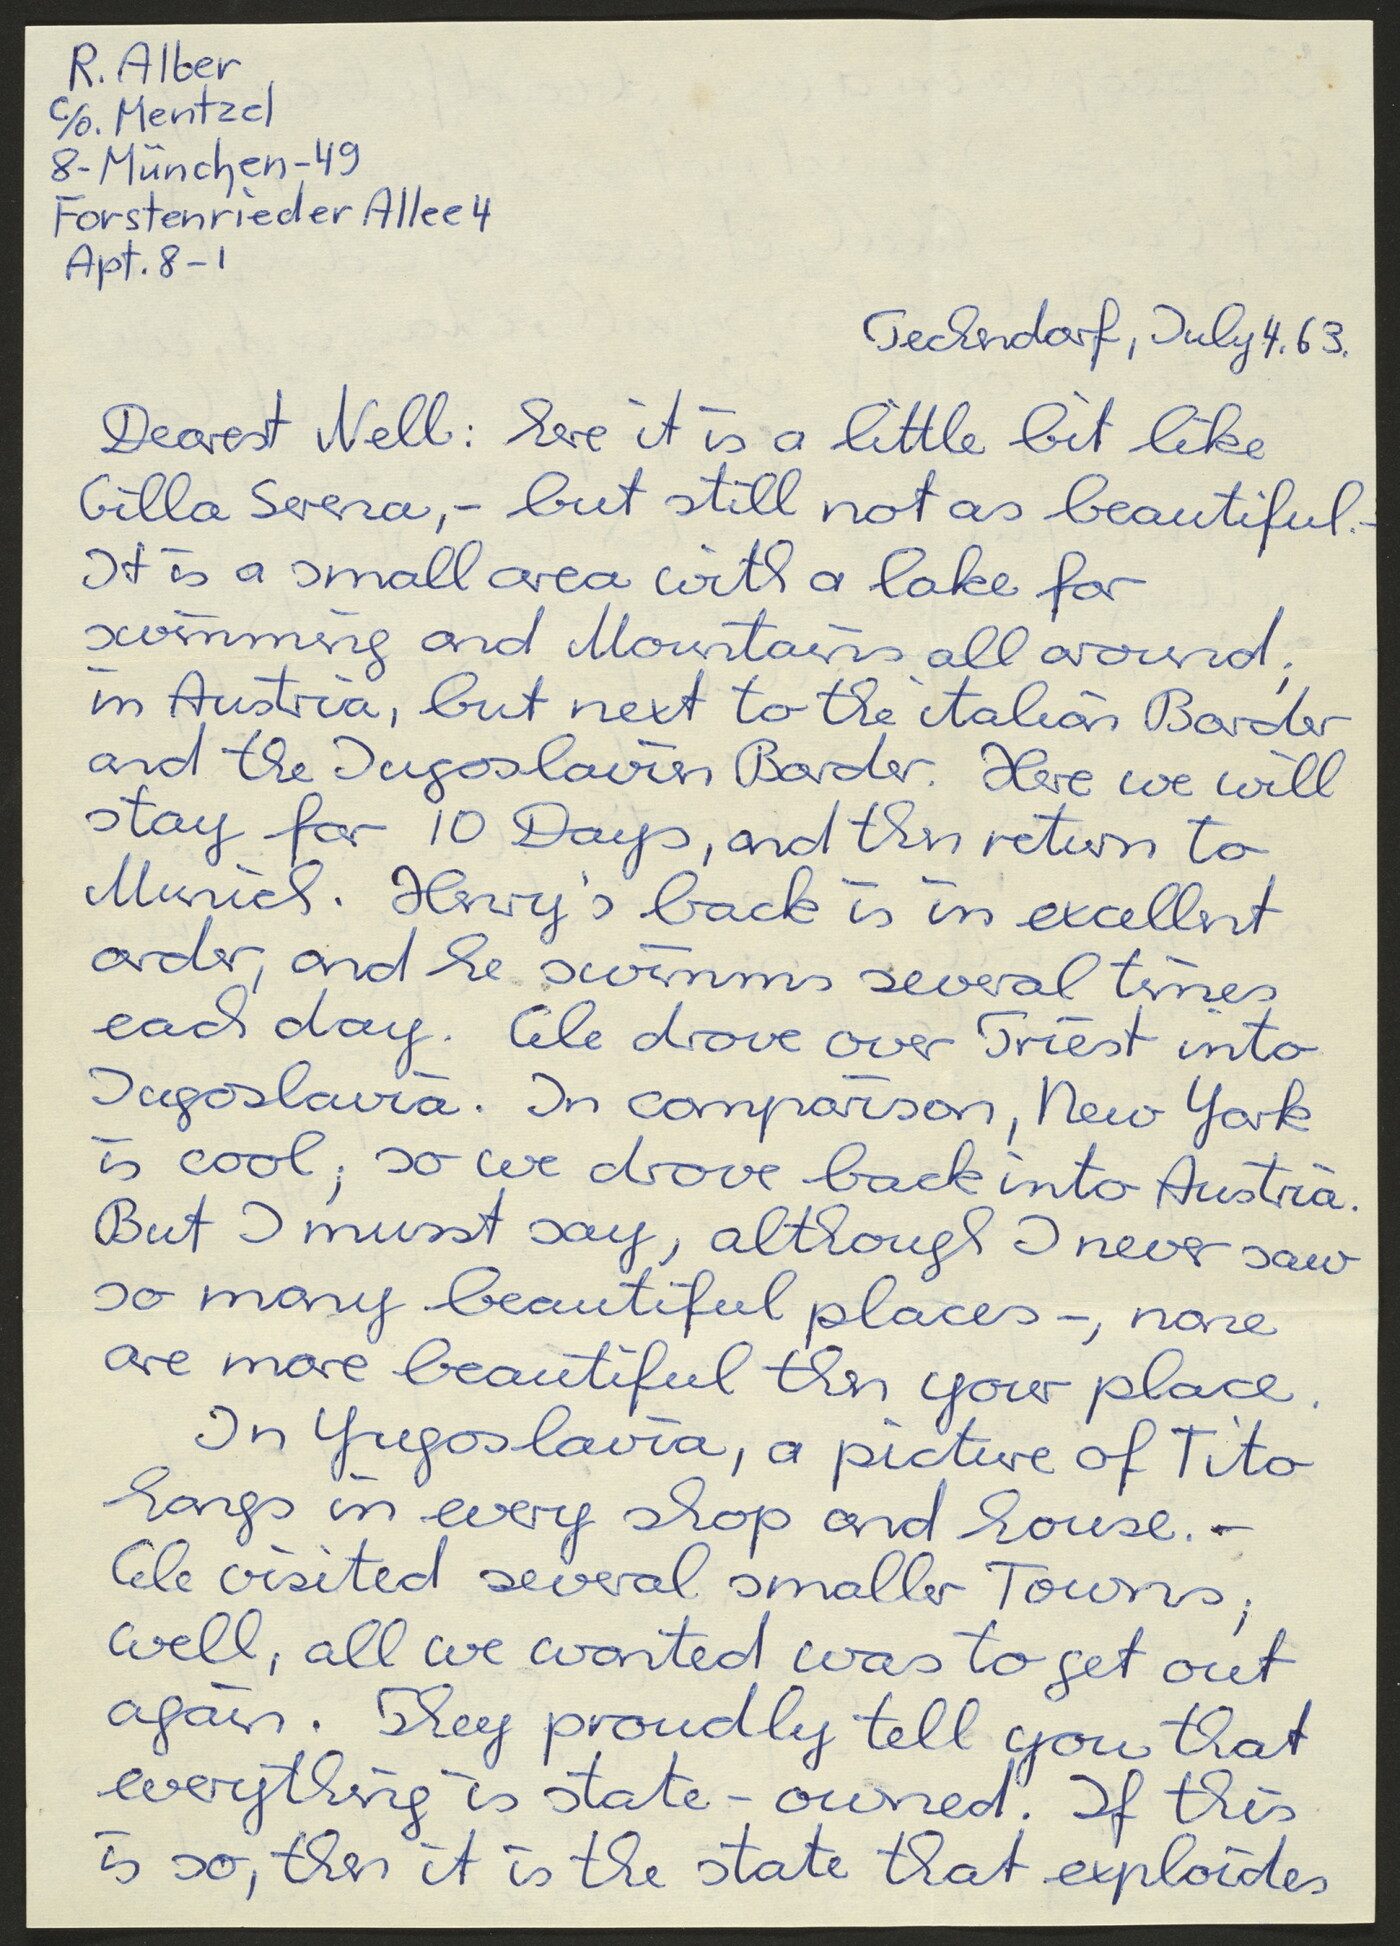 R. Alber
c/o. Mentzel
8-München-49
Forstenrieder Allee 4
Apt. 8-1
Techendorf, July 4. 63.
Dearest Nell: here it is a little bit like
Villa Serena,- but still not as beautiful.-
It is a small area with a lake for
swimming and Mountains all around;
in Austria, but next to the italian Border
and the Jugoslavien Border. Here we will
stay for 10 Days, and then return to
Munich. Henry's back is in excellent
order, and he swimms several times
each day. We drove over Triest into
Jugoslavia. In comparison, New York
is cool; so we drove back into Austria.
But I musst say, although I never saw
so many beautiful places -, none
are more beautiful then your place.
In Yugoslavia, a picture of Tito
hangs in every shop and house. -
We visited several smaller Towns;
well, all we wanted was to get out
again. They proudly tell you that
everything is state-owned. If this
is so, then it is the state that exploides